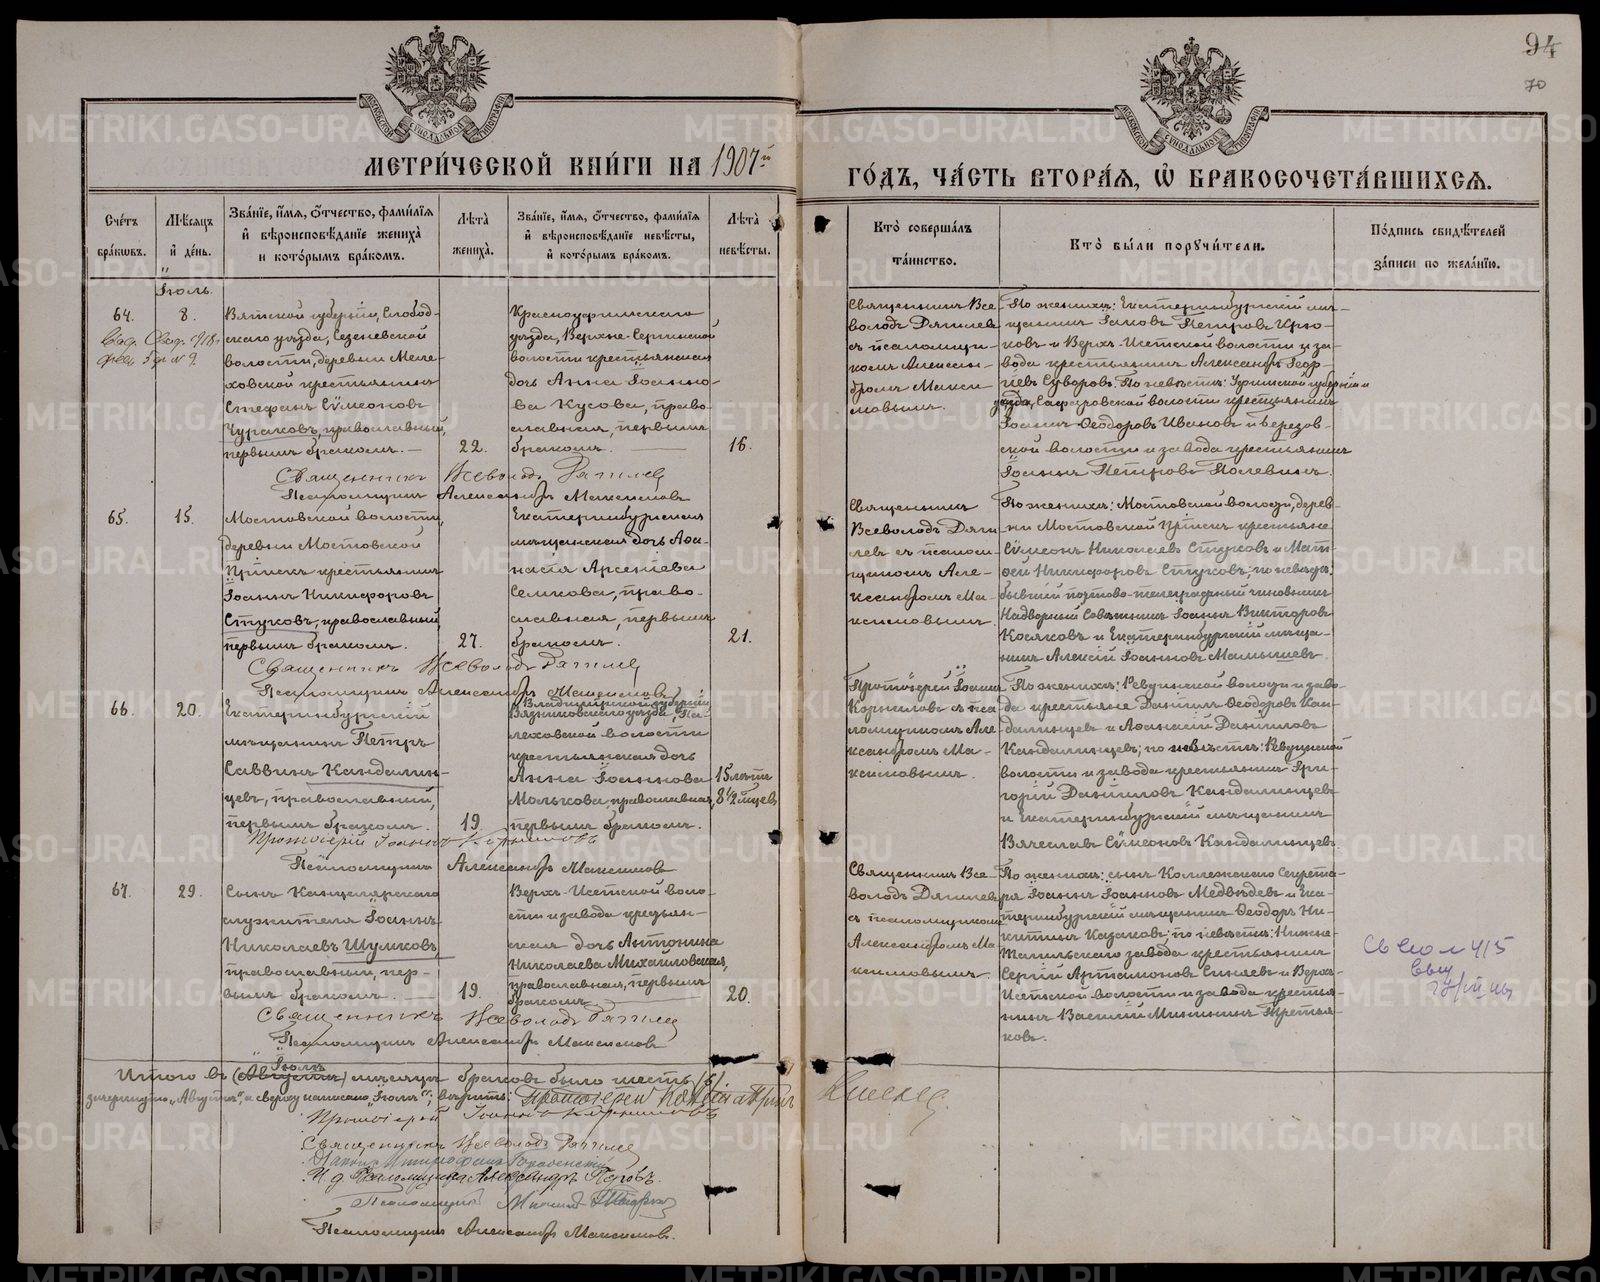 94
70
МЕТРИ́ЧЕСКОЙ КНИ́ГИ НА 1907й
ГО́ДЪ, ЧА́СТЬ ВТОРА́Я, Ѡ БРАКОСОЧЕТА́ВШИХСЯ.
Сче́тъ бра́кѡвъ.
Мѣ́сяцъ и де́нь.
Зва́нїе, и́мя, ѻ҆́тчество, фами́лїя и вѣроисповѣ́данїе жениха̀ и кото́рымъ бра́комъ.
Лѣ́та жениха̀.
Зва́нїе, и́мя, ѻ҆́тчество, фами́лїя и вѣроисповѣ́данїе невѣ́сты, и кото́рымъ бра́комъ.
Лѣ́та невѣ́сты.
Кто̀ соверша́лъ та́инство.
Кто̀ бы́ли поручи́тели.
По́дпись свидѣ́телей за́писи по жела́нїю.
Іюль.
64.
8.
Вятской губерніи, Слобод-
скаго уѣзда, Сезеневской
волости, деревни Меле-
ховской крестьянинъ
Стефанъ Сѵмеоновъ
Чураковъ, православный,
первымъ бракомъ.
22.
Красноуфимскаго
уѣзда, Верхне-Сергинской
волости крестьянская
дочь Анна Іоанно-
ва Кусова, право-
славная, первымъ
бракомъ.
16.
Священникъ Все-
володъ Дягилевъ
съ псаломщи-
комъ Алексан-
дромъ Макси-
мовымъ.
По женихѣ: Екатеринбургскій мѣ-
щанинъ Іаковъ Петровъ Крю-
ковъ и Верхъ-Исетской волости и за-
вода крестьянинъ Александръ Геор-
гіевъ Суворовъ. По невѣстѣ: Уфимской губерніи и
уѣзда, Сафаровской волости крестьянинъ
Іоаннъ Ѳеодоровъ Ивановъ и Березов-
ской волости и завода крестьянинъ
Іоаннъ Петровъ Полевинъ.
Священникъ Всеволодъ Дягилевъ
Псаломщикъ Александръ Максимовъ
65.
15.
Мостовской волости,
деревни Мостовской
Пріискъ крестьянинъ
Іоаннъ Никифоровъ
Стуковъ, православный,
первымъ бракомъ.
27.
Екатеринбургская
мѣщанская дочь Аѳа-
насія Арсеніева
Семкова, право-
славная, первымъ
бракомъ.
21.
Священникъ
Всеволодъ Дяги-
левъ съ псалом-
щикомъ Але-
ксандромъ Ма-
ксимовымъ
По женихѣ: Мостовской волости, дерев-
ни Мостовской Пріискъ крестьяне
Сѵмеонъ Николаевъ Стуковъ и Мат-
ѳей Никифоровъ Стуковъ; по невѣстѣ:
бывшій почтово-телеграфный чиновникъ
Надворный Совѣтникъ Іоаннъ Викторовъ
Косяковъ и Екатеринбургскій мѣща-
нинъ Алексій Іоанновъ Мамышевъ.
Священникъ Всеволодъ Дягилевъ
Псаломщикъ Александръ Максимовъ
66.
20.
Екатеринбургскій
мѣщанинъ Петръ
Саввинъ Кандалин-
цевъ, православный,
первымъ бракомъ.
19.
Владимірской губерніи
Вязниковскаго уѣзда, Па-
леховской волости
крестьянская дочь
Анна Іоаннова
Молькова, православная,
первымъ бракомъ.
15 лѣтъ
8 1/2 мѣсяцев
Протоіерей Іоаннъ
Корниловъ съ пса-
ломщикомъ Але-
ксандромъ Ма-
ксимовымъ.
По женихѣ: Ревдинской волости и заво-
да крестьяне Даніилъ Ѳеодоровъ Кан-
далинцевъ и Аѳанасій Даніиловъ
Кандалинцевъ; по невѣстѣ: Ревдинской
волости и завода крестьянинъ Гри-
горій Даніиловъ Кандалинцевъ
и Екатеринбургскій мѣщанинъ
Вячеславъ Сѵмеоновъ Кандалинцевъ
Протоіерей Іоаннъ Корниловъ
Псаломщикъ Александръ Максимовъ
67.
29.
Сынъ Канцелярскаго
служителя Іоаннъ
Николаевъ Шумковъ,
православный, пер-
вымъ бракомъ.
19.
Верхъ-Исетской воло-
сти и завода крестьян-
ская дочь Антонина
Николаева Михайловская,
православная, первымъ
бракомъ
20.
Священникъ Все-
володъ Дягилевъ
съ псаломщикомъ
Александромъ Ма-
ксимовымъ.
По женихѣ: сынъ Коллежскаго Секрета-
ря Іоаннъ Іоанновъ Медвѣдевъ и Ека-
теринбургскій мѣщанинъ Ѳеодоръ Ни-
китинъ Казаковъ; по невѣстѣ: Нижне-
Тагильскаго завода крестьянинъ
Сергій Артамоновъ Синяевъ и Верхъ-
Исетской волости и завода крестья-
нинъ Василій Мининъ Третья-
ковъ.
Священникъ Всеволодъ Дягилевъ
Псаломщикъ Александръ Максимовъ
Іюлѣ
Итого въ (Августѣ) мѣсяцѣ браковъ было шесть (6)
зачеркнуто „Августѣ“, а сверху написано „Іюлѣ“,
Протоіерей Іоаннъ Корниловъ
Священникъ Всеволодъ Дягилевъ
И. д. Псаломщика Александръ Поповъ.
Псаломщикъ
Псаломщикъ Александръ Максимовъ.
METRIKI.GASO-URAL.RU